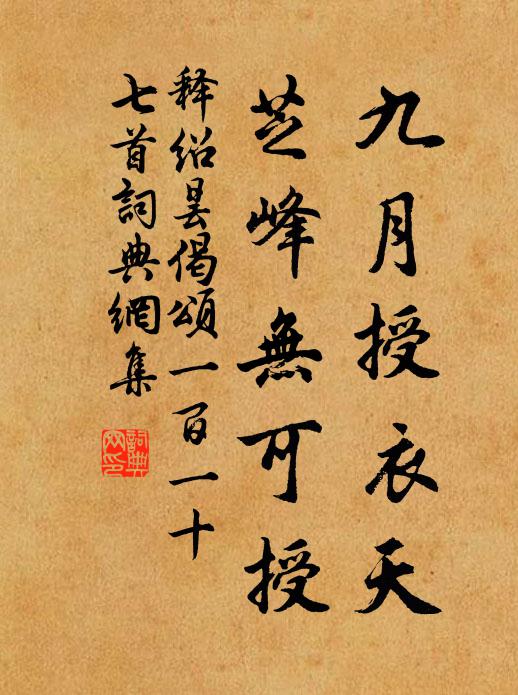 九月授衣天
芝峰無可授
释绍昙偈頌一百一十
七首詞典網集
詞典
网印